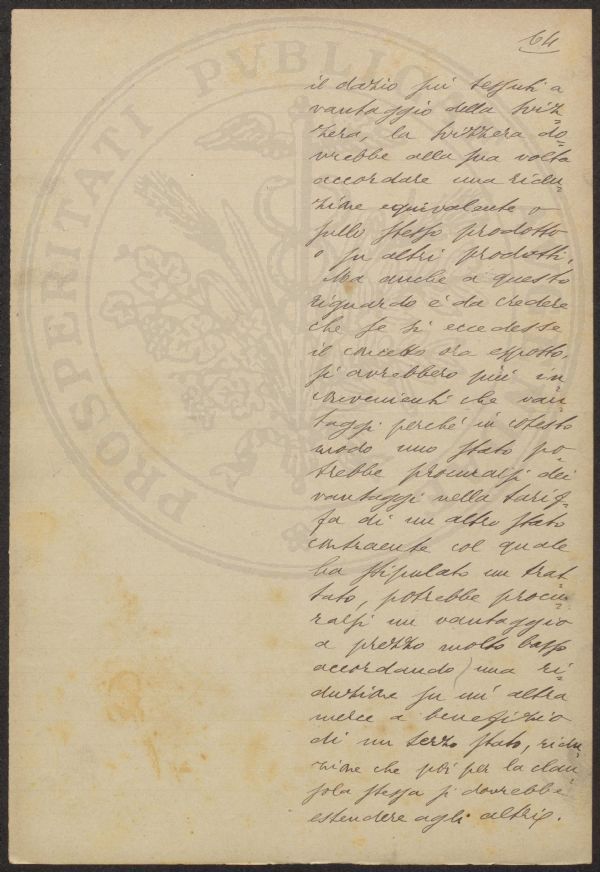 64
il dazio sui tessuti a
vantaggio della Sviz=
zera, la Svizzera do=
vrebbe alla sua volta
accordare una ridu=
zione equivalente o
sullo stesso prodotto
o su altri prodotti.
Ma anche a questo
riguardo è da credere
che se si eccedesse
il concetto ora esposto,
si avrebbero più in
convenienti che van=
taggi perché in cotesto
modo uno stato po=
trebbe procurarsi dei
vantaggi nella tarif=
fa di un altro stato
contraente col quale
ha stipulato un trat=
tato, potrebbe procu=
rarsi un vantaggio
a prezzo molto basso
accordando) una ri=
duzione su un' altra
merce a benefizio
di un terzo stato, ridu=
zione che poi per la clau=
sola stessa si dovrebbe
estendere agli altri.
PROSPERITATI PVBLIC